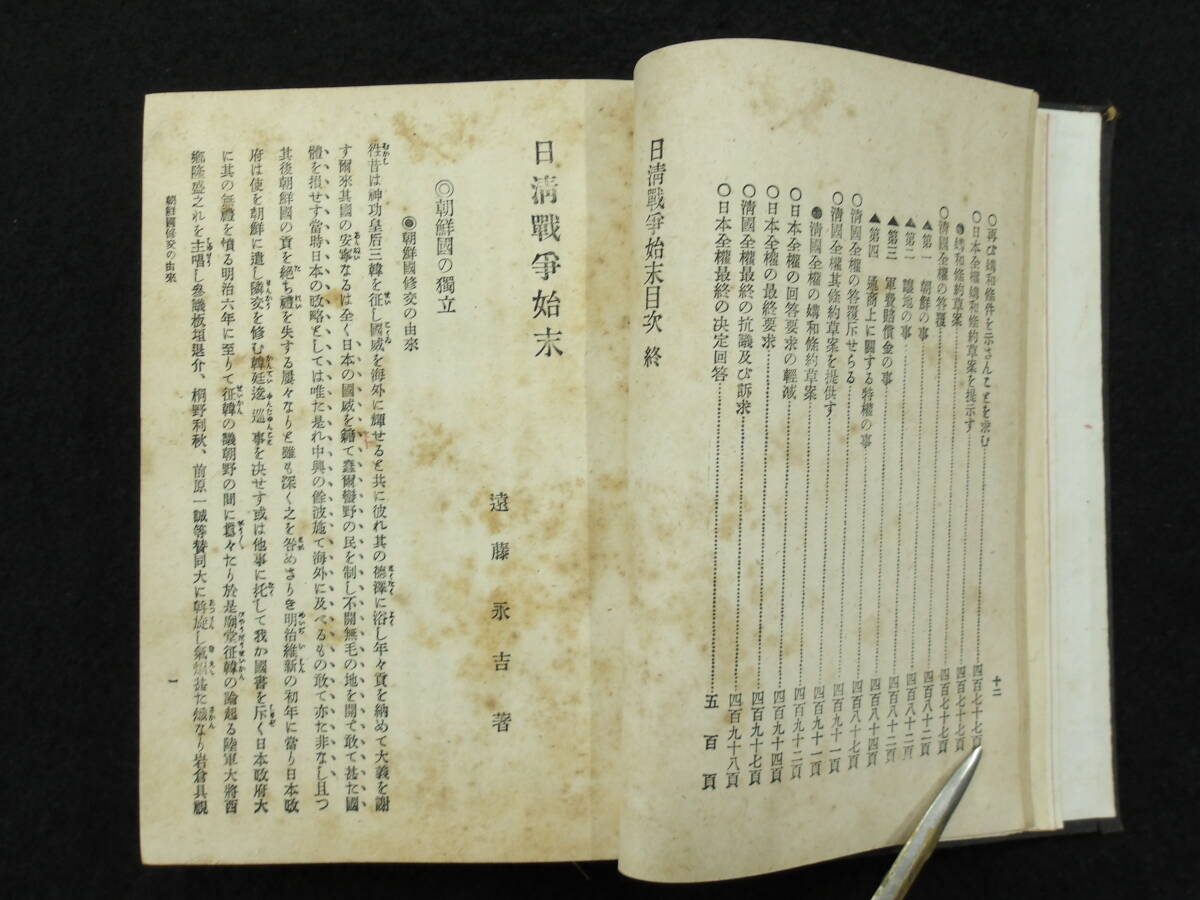 十二
○再び媾和條件を示さんことを求む 四百七十七頁
○日本全權媾和條約草案を提示す 四百七十七頁
●媾和條約草案 四百七十七頁
○清國全權の答覆 四百八十二頁
▲第一 朝鮮の事 四百八十二頁
▲第二 讓地の事 四百八十二頁
▲第三 軍費賠償金の事 四百八十四頁
▲第四 通商上に關する特權の事
○清國全權の答覆斥せらる 四百八十七頁
○清國全權其條約草案を提供す 四百九十一頁
●清國全權の媾和條約草案 四百九十一頁
○日本全權の回答要求の輕減 四百九十二頁
○日本全權の最終要求 四百九十四頁
○清國全權最終の抗議及び訴求 四百九十七頁
○日本全權最終の決定回答 四百九十八頁
五百頁
日清戰爭始末目次 終
日清戰爭始末
遠藤永吉著
◎朝鮮國の獨立
◉朝鮮國修交の由來
往昔は神功皇后三韓を征し國威を海外に輝せると共に彼れ其の德澤に浴し年々貢を納めて大義を謝
す爾來其國の安寧なるは全く日本の國威を籍て蠢爾蠻野の民を制し不開無毛の地を開て敢て甚た國
體を損せす當時日本の政略としては唯た是れ中興の餘波施て海外に及べるもの敢て亦た非なし且つ
其後朝鮮國の貢を絶ち禮を失する屢々なりと雖も深く之を咎めさりき明治維新の初年に當り日本政
府は使を朝鮮に遣し隣交を修む韓廷逡巡事を決せす或は他事に托して我か國書を斥く日本政府大
に其の無禮を憤る明治六年に至りて征韓の議朝野の間に囂々たり於是廟堂征韓の論起る陸軍大將西
鄕隆盛之れを主唱し參議板垣退介、桐野利秋、前原一誠等贊同大に斡旋し氣焔甚た熾なり岩倉具視
朝鮮國修交の由來
一